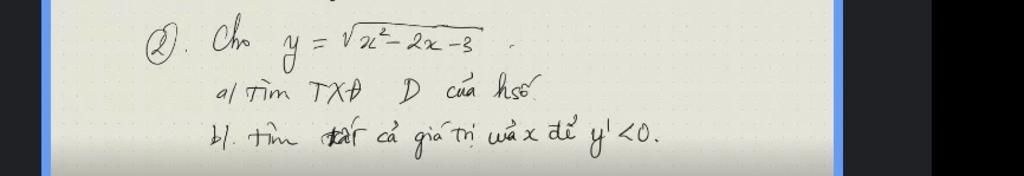 ②. Cho y = √x²- 2x -3 .
a/ Tìm TXĐ D của hsố.
b/. tìm tất cả giá trị của x để y' <0.